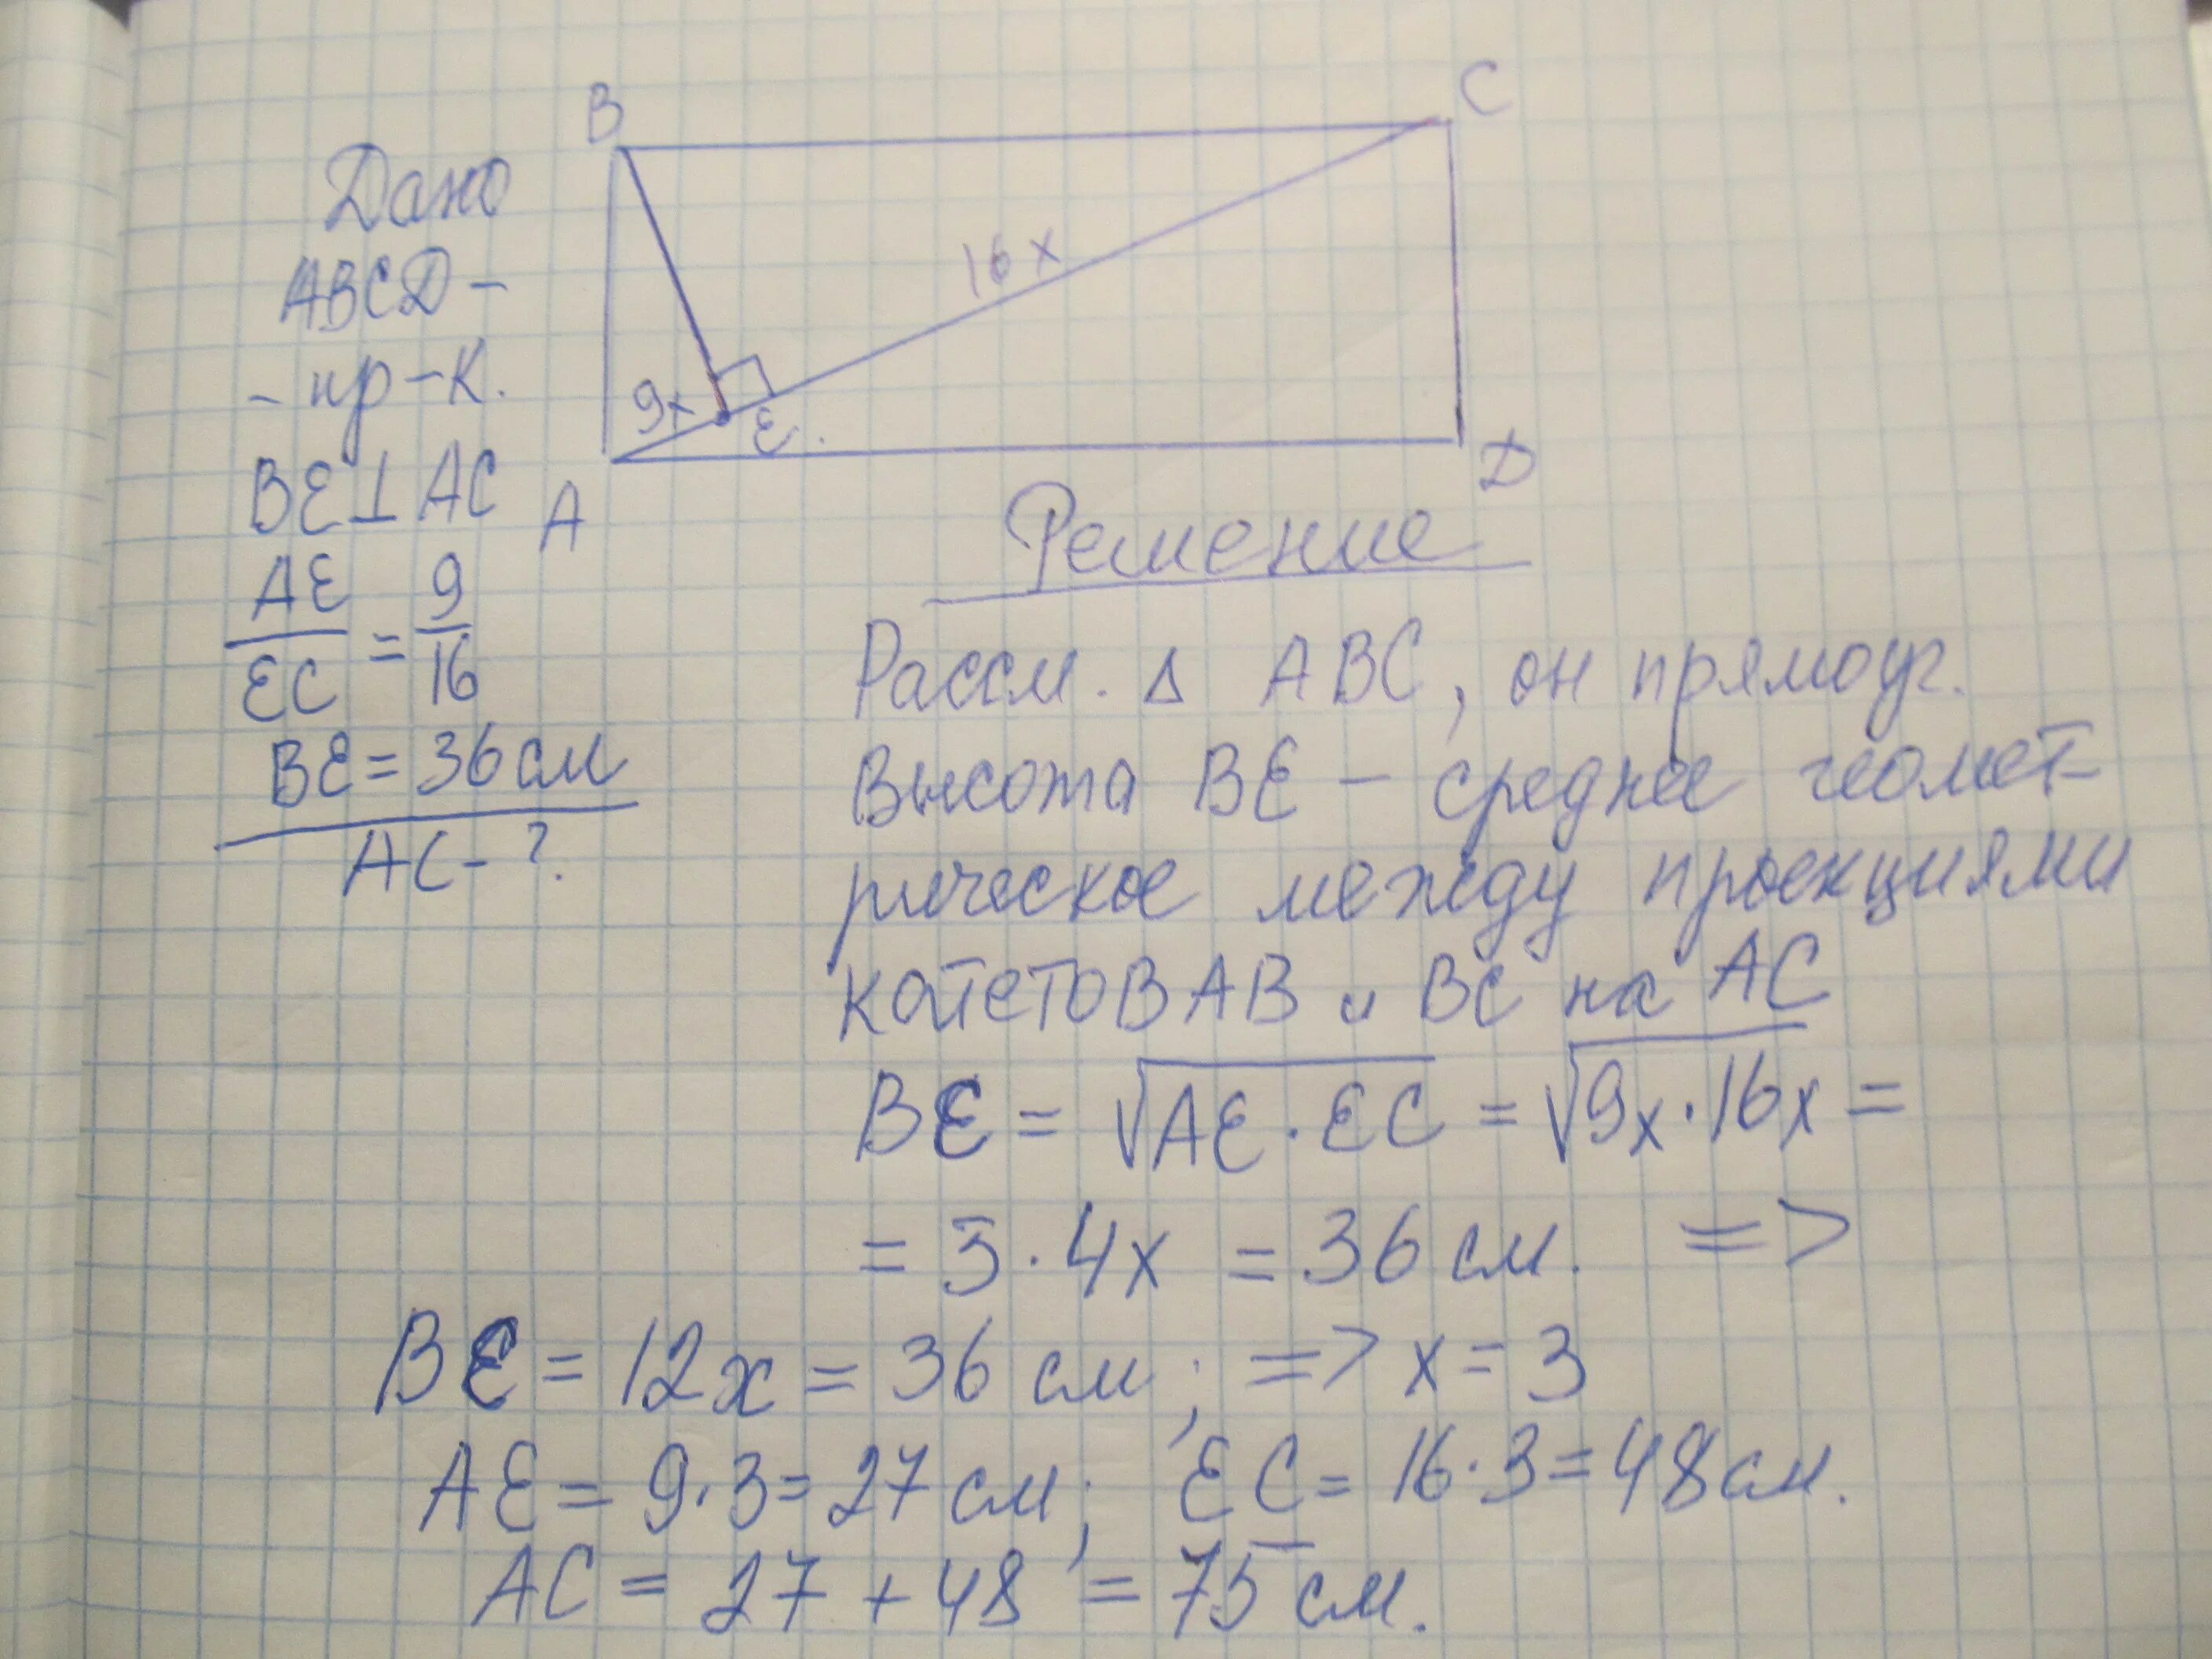 B
C
16x
9x
E.
A
D
Дано
ABCD –
– пр – к.
BE ⊥ AC
AE/EC = 9/16
BE = 36 см
AC – ?
Решение
Рассм. Δ ABC, он прямоуг.
Высота BE – среднее геомет-
рическое между проекциями
катетов AB и BC на AC
BE = √AE · EC = √9x · 16x =
= 3 · 4x = 36 см. =>
BE = 12x = 36 см; => x = 3
AE = 9 · 3 = 27 см; EC = 16 · 3 = 48 см.
AC = 27 + 48 = 75 см.